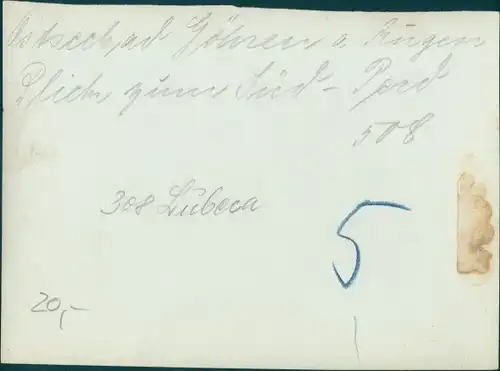 Ostseebad Göhren a Rügen
Blick zum Süd - Perd
508
308 Lubeca
5
20,-